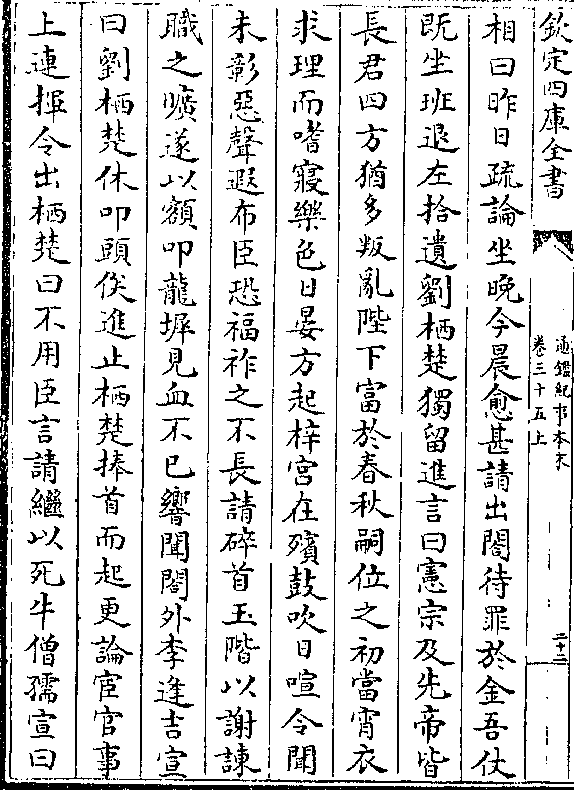 欽定四庫全書
通鑑紀事本末
卷三十五上
二十二
相曰昨日疏論坐晚今晨愈甚請出閤待罪於金吾仗
既坐班退左拾遺劉栖楚獨留進言曰憲宗及先帝皆
長君四方猶多叛亂陛下富於春秋嗣位之初當宵衣
求理而嗜寢樂色日晏方起梓宮在殯鼓吹日喧令聞
未彰惡聲遐布臣恐福祚之不長請碎首玉階以謝諫
職之曠遂以額叩龍墀見血不已響聞閤外李逢吉宣
曰劉栖楚休叩頭俟進止栖楚捧首而起更論宦官事
上連揮令出栖楚曰不用臣言請繼以死牛僧孺宣曰